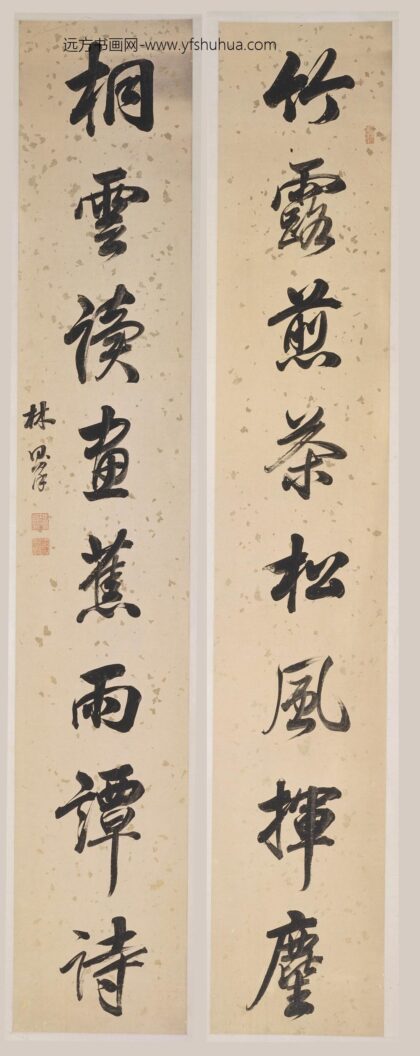 远方书画网-www.yfshuhua.com
竹露煎茶松風揮麈
桐雲讀畫蕉雨譚詩
林則徐